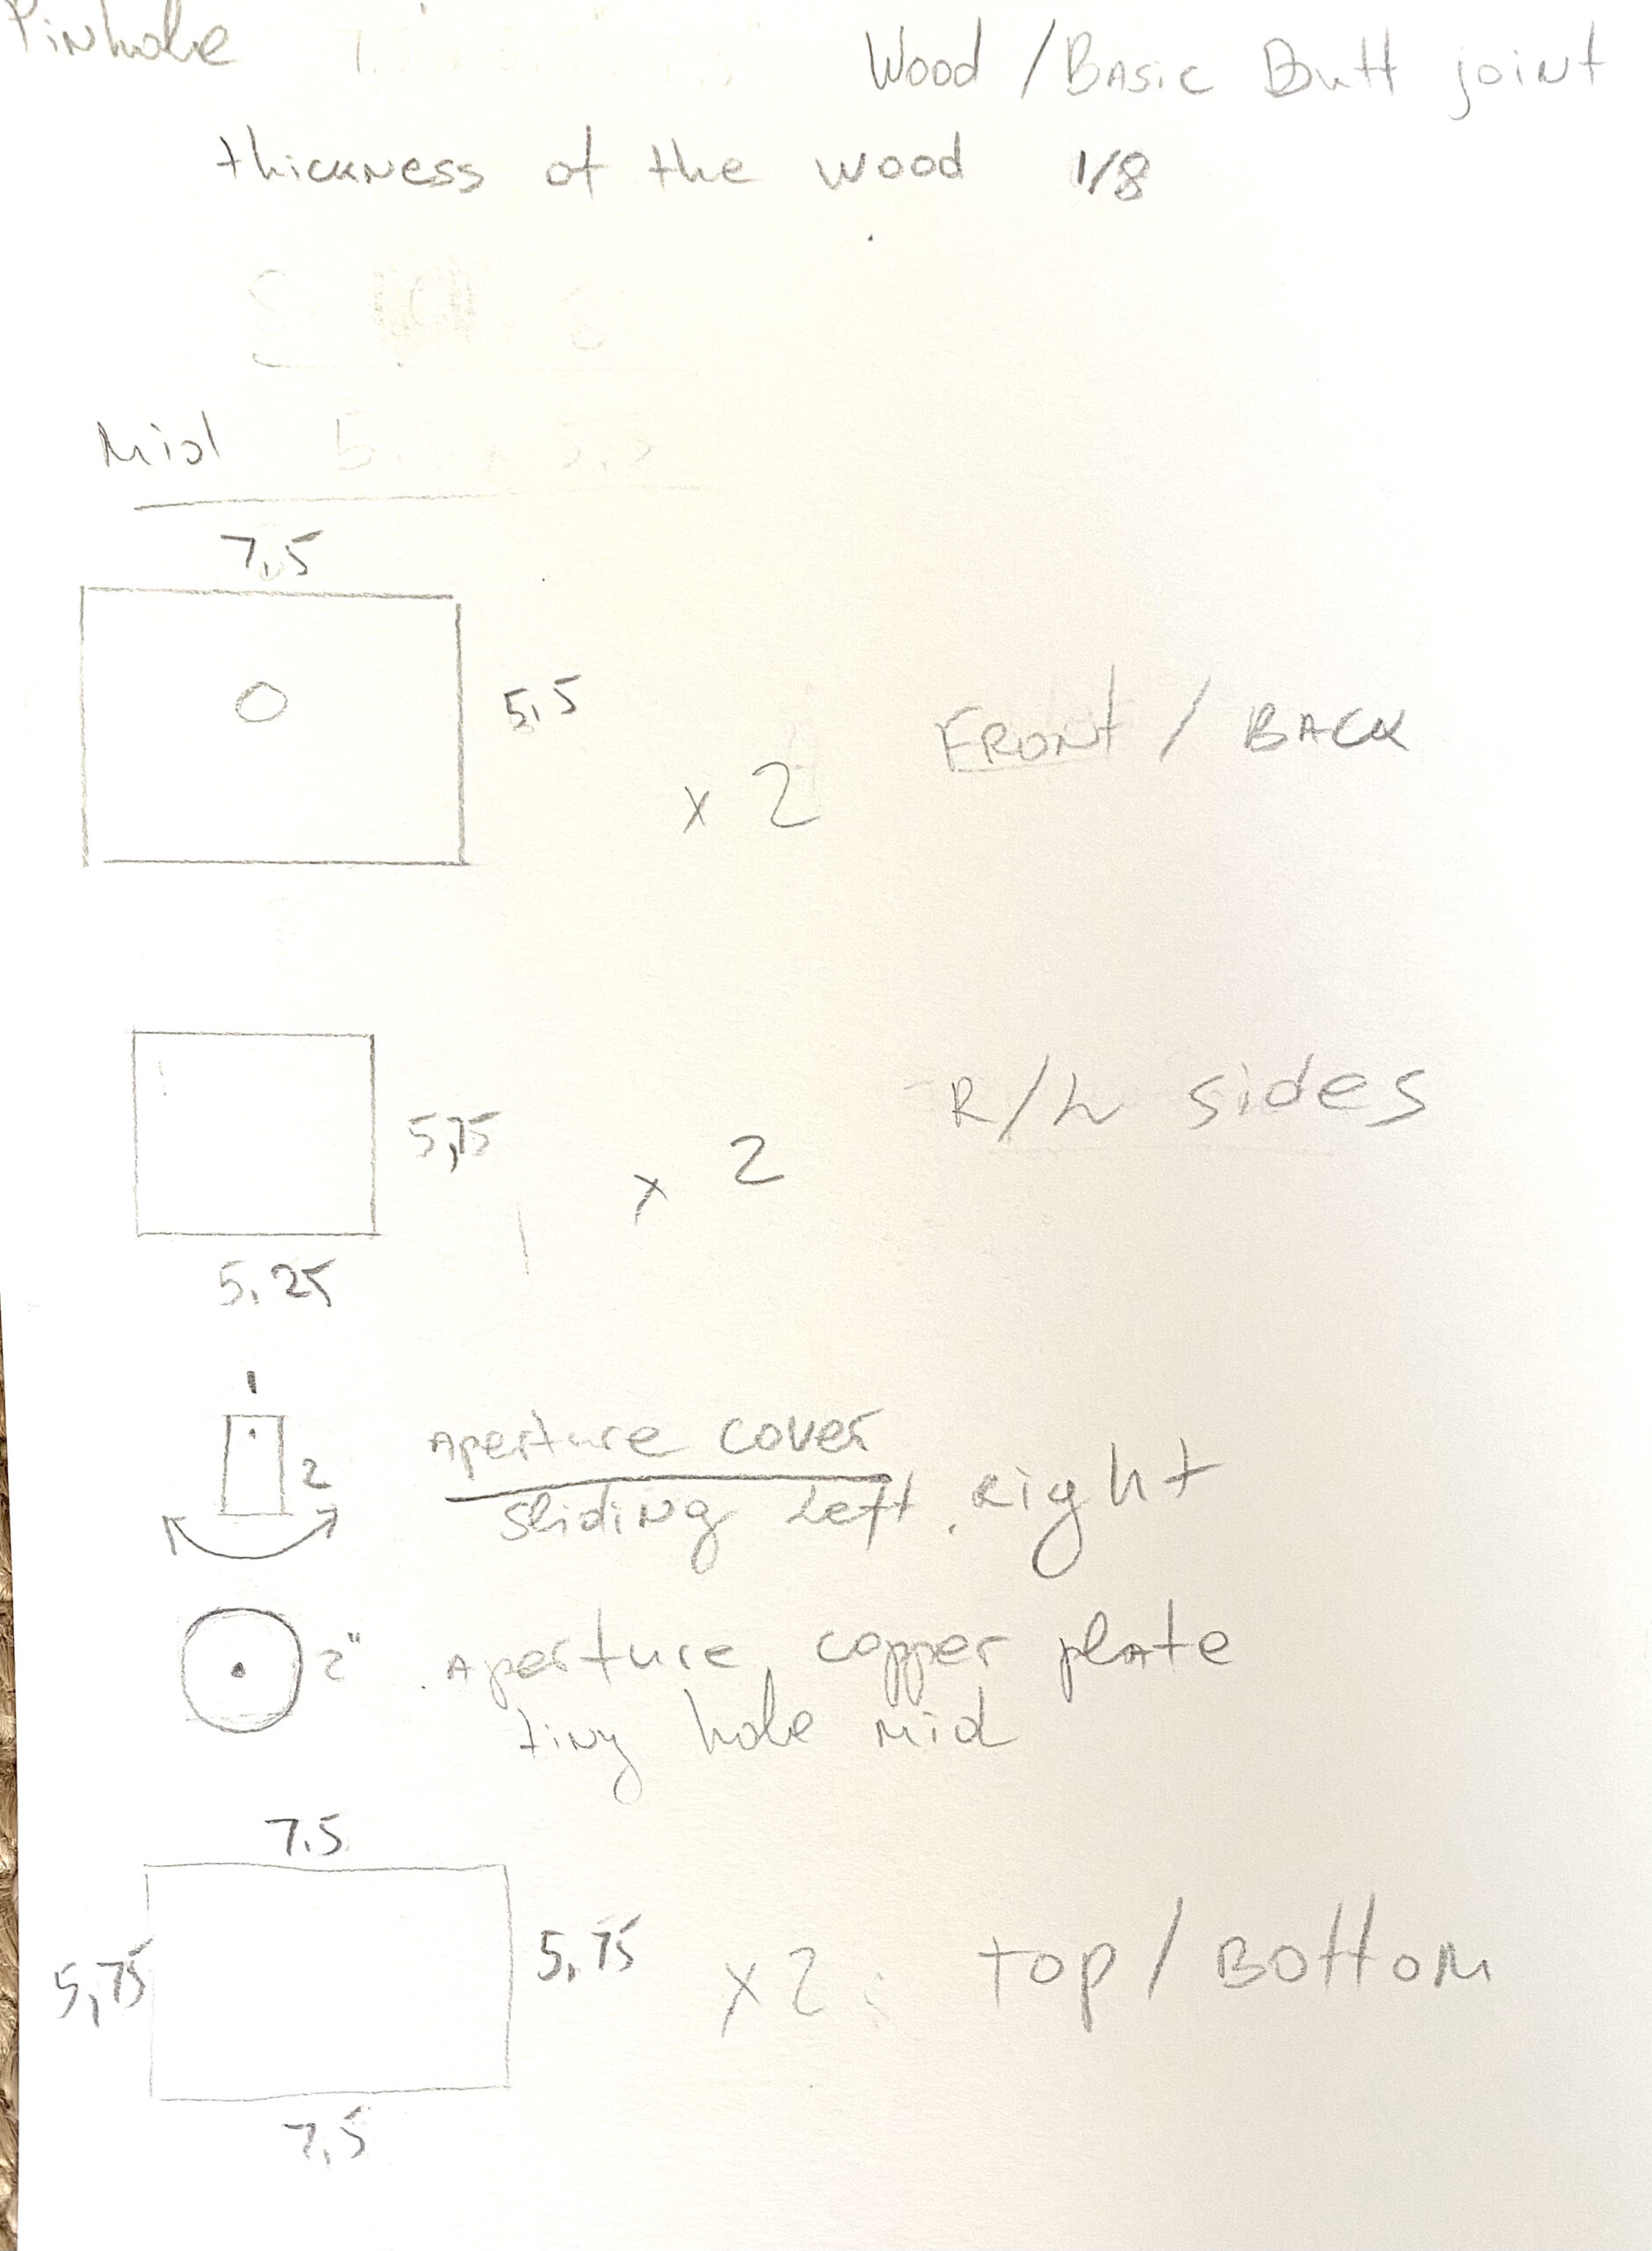 Pinhole
Wood / Basic Butt joint
thickness of the wood 1/8
Mid
7.5
5,5
x 2
FRONT / BACK
5,75
x 2
R/L sides
5.25
1
2
Aperture cover
sliding Left, Right
2"
Aperture, copper plate
tiny hole mid
7.5
5,75
5,75
x 2
top / Bottom
7.5